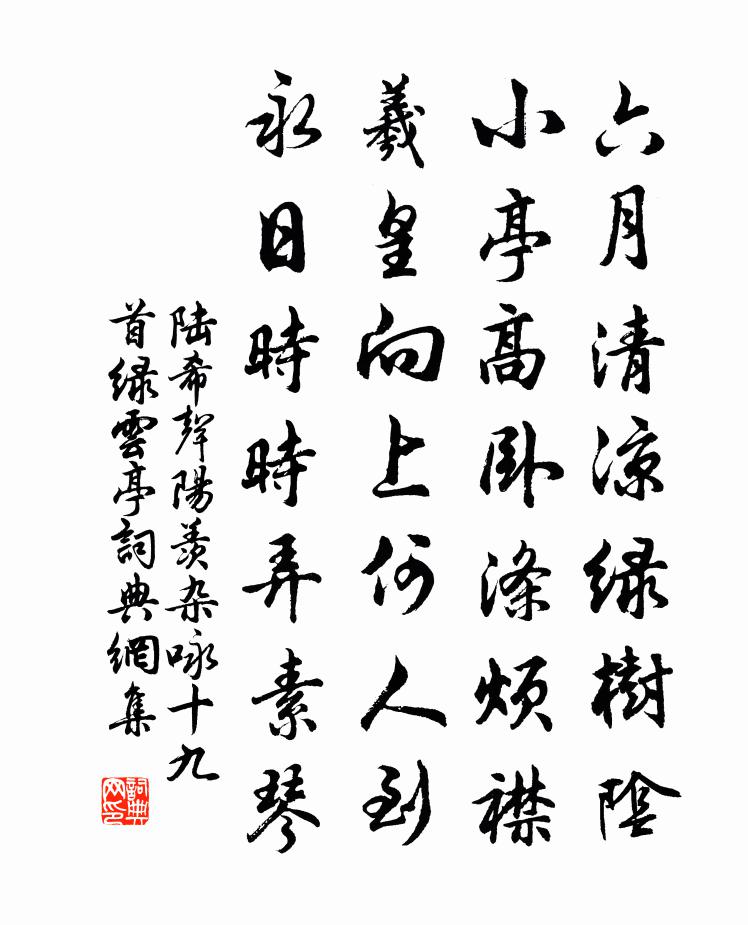 六月清凉绿樹陰
小亭高卧滌煩襟
羲皇向上何人到
永日時時弄素琴
陆希聲陽羨杂咏十九
首绿雲亭詞典網集
詞典
网印